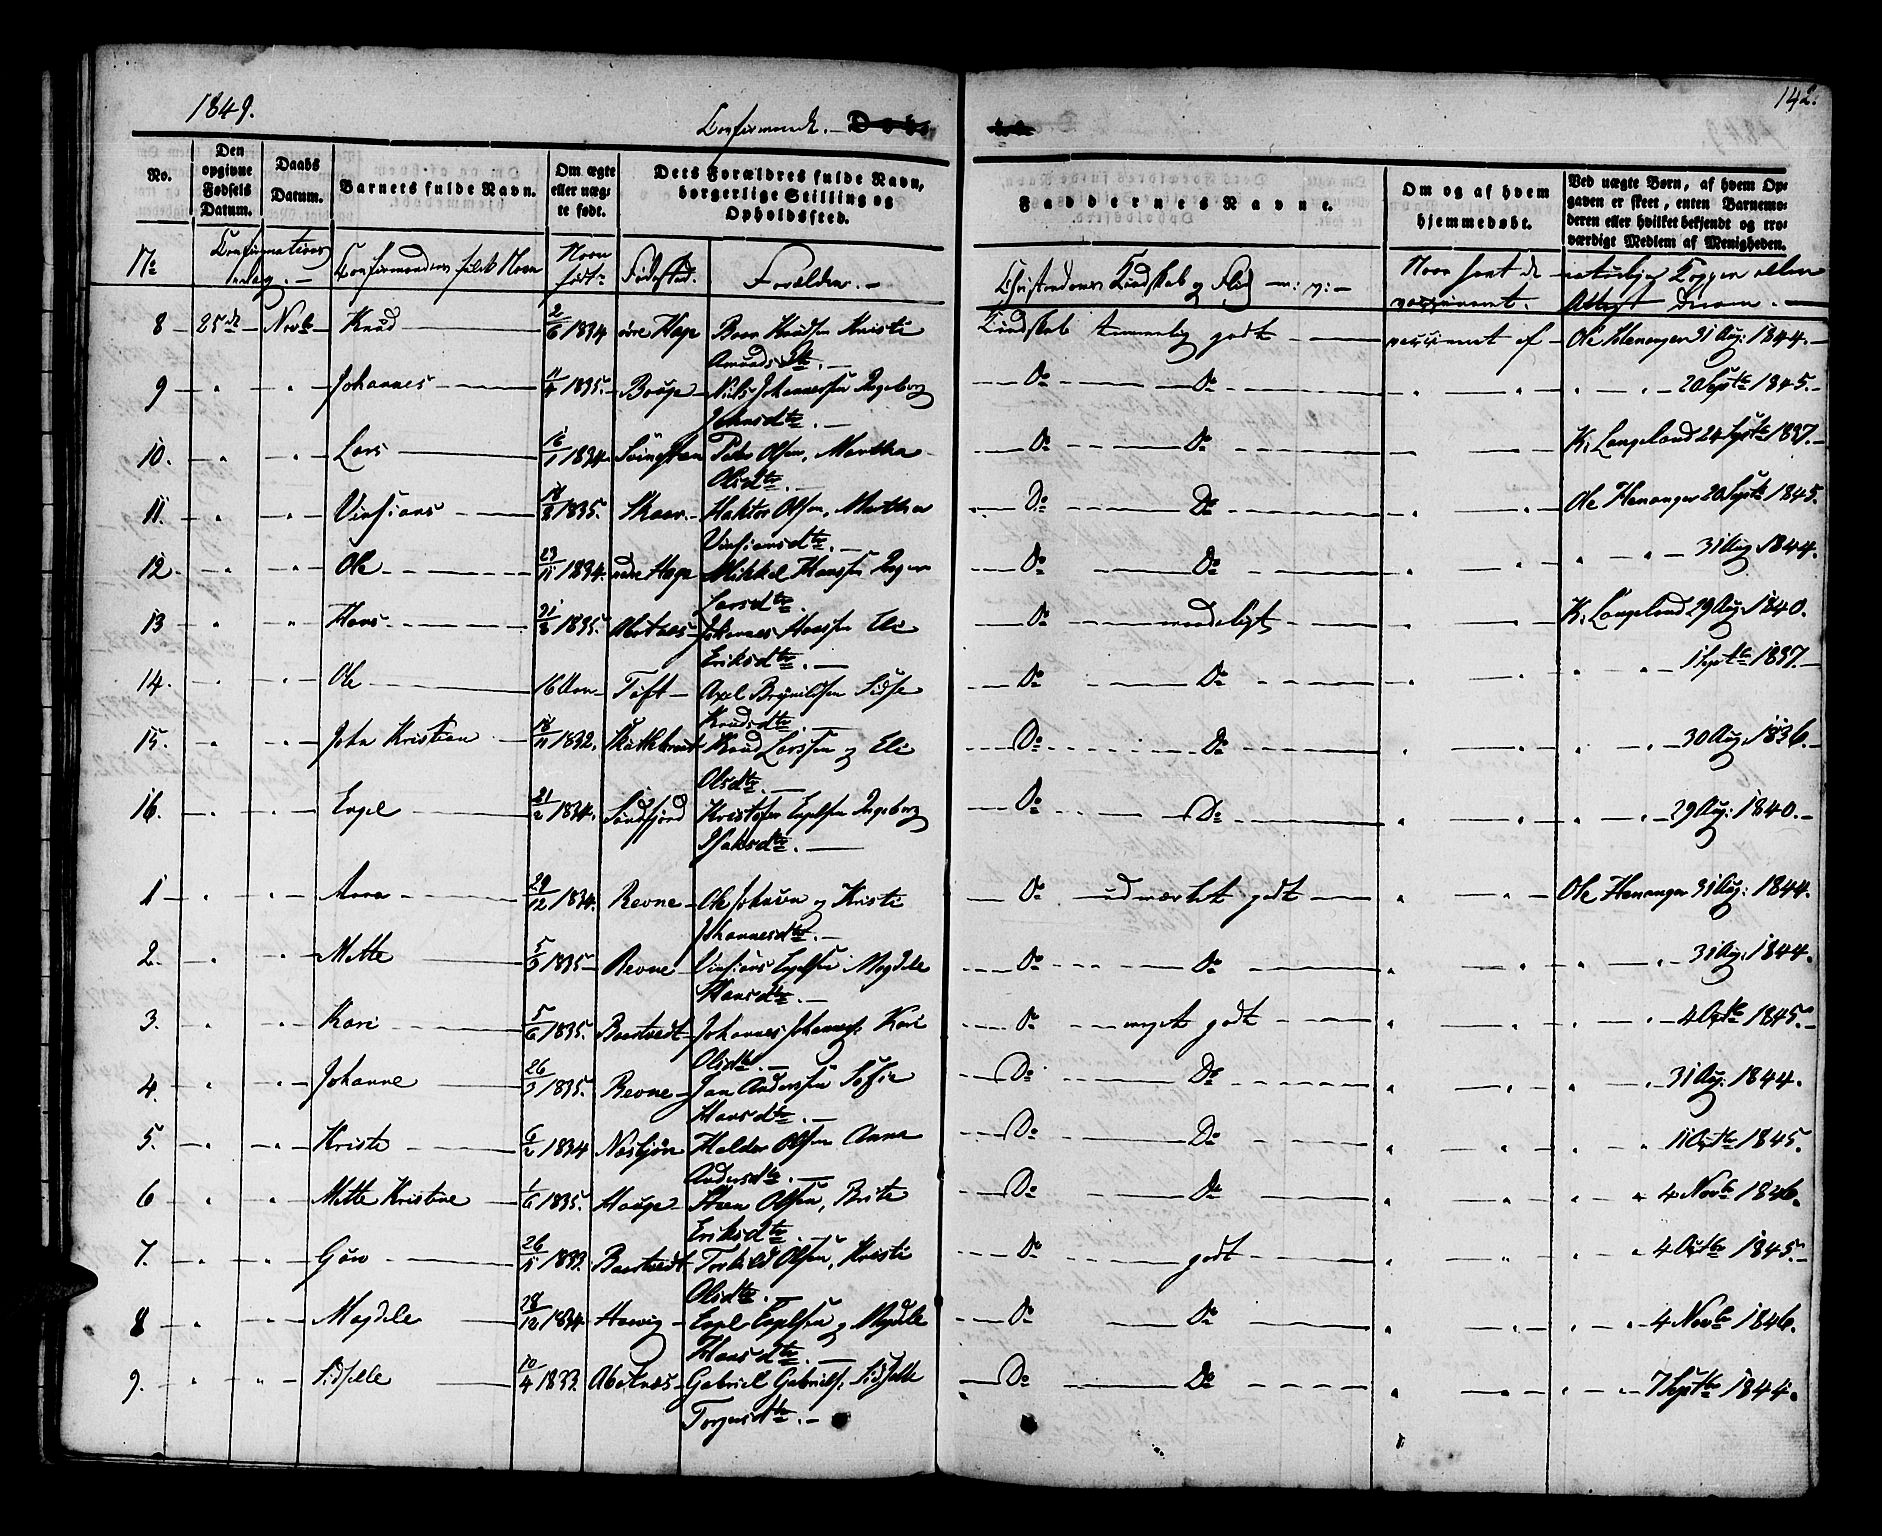 1849.
142.
Confirmerede. — Døbe
No.
Den opgivne Fødsels Datum.
Daabs Datum.
Barnets fulde Navn.
Om ægte eller uægte født.
Dets Forældres fulde Navn, borgerlige Stilling og Opholdssted.
Faddernes Navne.
Om og af hvem hjemmedøbt.
Ved uægte Børn, af hvem Opgaven er skeet, enten Barnemoderen eller hvilket bekjendt og troværdigt Medlem af Menigheden.
No Confirmations Confirmandens fulde Navn Naar født Fødested. Forældre. — Christendoms Kundskab og Flid — Naar havt de naturlige Kopper eller vaccineret. Attest derom. —
8 — 25de — Novbr — Knud — 2/6 1834 øvre Hope Knudsen Kristi Kundskab temmelig godt — vaccineret af — Ole Henanger 31 Aug: 1844. —
Amunds Dtr. —
9 Johannes — 11/4 1835. Nils Johannessen Ingeborg — Do — Do — 20 Septbr 1845. —
Johnsdtr. —
10. Lars — 16/1 1834 Peder Olsen, Martha — Do — Do — K. Langeland 24 Septbr 1837. —
Olsdtr. —
11. Vinsians — 1835. Skaar — Haktor Olsen, Martha — Do — Do — Ole Henanger 20 Septbr 1845.
Vinsiansdtr. —
12 Ole — 23/11 1834. Hope Mikkel Hansen Inger — Do — Do — 31 Aug 1844.
Larsdtr.
13 Hans — 21/3 1835. Abotnes — Johannes Hansen Eli — Do — maadeligt — K. Langeland 29 Aug: 1840.
Eriksdtr. —
14. Ole — 16 Aar — Toft — Axel Brynildsen Sidse — Do — Do — 1 Septbr 1837. —
Knudsdtr. —
15. John Kristian — 18/11 1832. Knud Larssen og Eli — Do — Do — 30 Aug: 1836. —
Olsdtr. —
16. Engel — 21/2 1834. Sundfjord Kristofer Engelsen Ingeborg — Do — Do — 29 Aug: 1840. —
Isaksdtr. —
1 Anna — 29/12 1834. Revne — Ole Johnsen og Kristi — Do — udmærket godt — Ole Henanger 31 Aug: 1844.
Johannesdtr. —
2. Mette — 1835 — Revne — Vinsians Engelsen Magdele — Do — Do — 31 Aug: 1844.
Hansdtr. —
3. Kari — 5/6 1835. Bortvedt — Johannes Johanness. Kari — Do — meget godt — 4 Octbr 1845. —
Olsdtr. —
4. Johanne — 26/3 1835. Revne — Jan Anderssen Sofie — Do — Do — 31 Aug: 1844.
Hansdtr. —
5. Kristi — 6/2 1834 Haldor Olsen Anna — Do — Do — 11 Octbr 1845.
Andersdtr. —
6 Mette Kristine — 1/6 1835. Hauge Steen Olsen, Brite — Do — Do — 4 Novbr 1846.
Eriksdtr. —
7. Guro — 26/11 1833. Bortvedt Torkild Olsen, Kristi — Do — godt — 4 Octbr 1845. —
Olsdtr. —
8 Magdele — 28/12 1834 — Engel Engelsen og Magdele — Do — Do — 4 Novbr 1846.
Hansdtr. —
9. Sidselle — 10/4 1833. Abotnes — Gabriel Gabriels. Sidselle — Do — Do — 7 Septbr 1844.
Torgersdtr. —